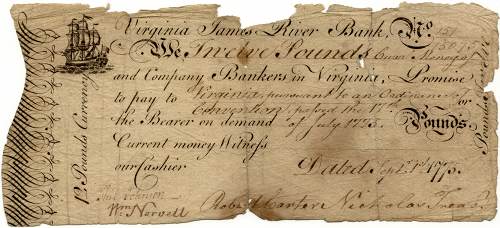 Virginia James River Bank, No. 151
We Twelve Pounds Curr. Money of
and Company Bankers in Virginia, Promise
to pay to Virginia pursuant to an Ordinance of
Convention, passed the 17th or
the Bearer on demand of July 1775. Pounds
Current money Witness
our Cashier Dated Sept. 1st 1775.
12 Pounds Currency
Pounds
Johnson
Wm. Norvell
Robt. Carter Nicholas Treasr.